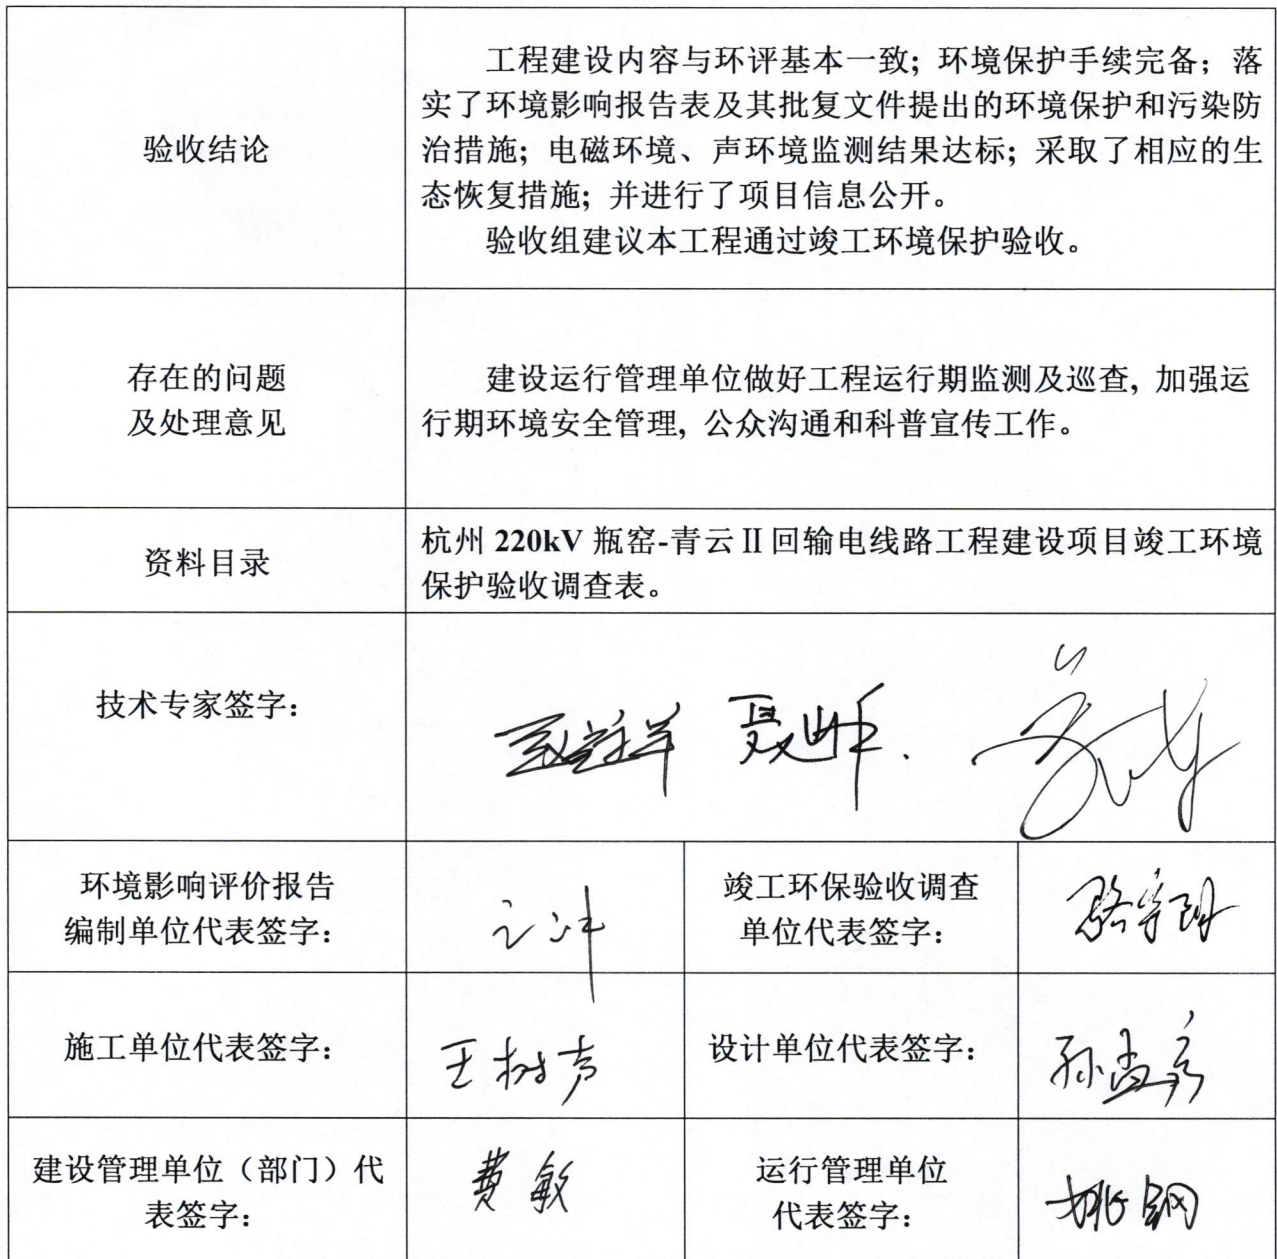 验收结论
工程建设内容与环评基本一致；环境保护手续完备；落
实了环境影响报告表及其批复文件提出的环境保护和污染防
治措施；电磁环境、声环境监测结果达标；采取了相应的生
态恢复措施；并进行了项目信息公开。
验收组建议本工程通过竣工环境保护验收。
存在的问题
及处理意见
建设运行管理单位做好工程运行期监测及巡查，加强运
行期环境安全管理，公众沟通和科普宣传工作。
资料目录
杭州 220kV 瓶窑-青云Ⅱ回输电线路工程建设项目竣工环境
保护验收调查表。
技术专家签字：
环境影响评价报告
编制单位代表签字：
竣工环保验收调查
单位代表签字：
施工单位代表签字：
王树声
设计单位代表签字：
建设管理单位（部门）代
表签字：
费敏
运行管理单位
代表签字：
姚钢